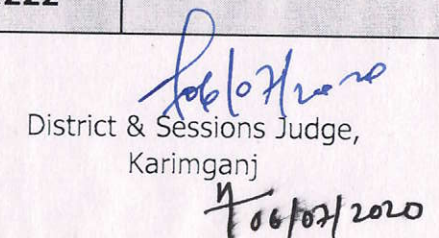 222
06/07/2020
District & Sessions Judge,
Karimganj
06/07/2020